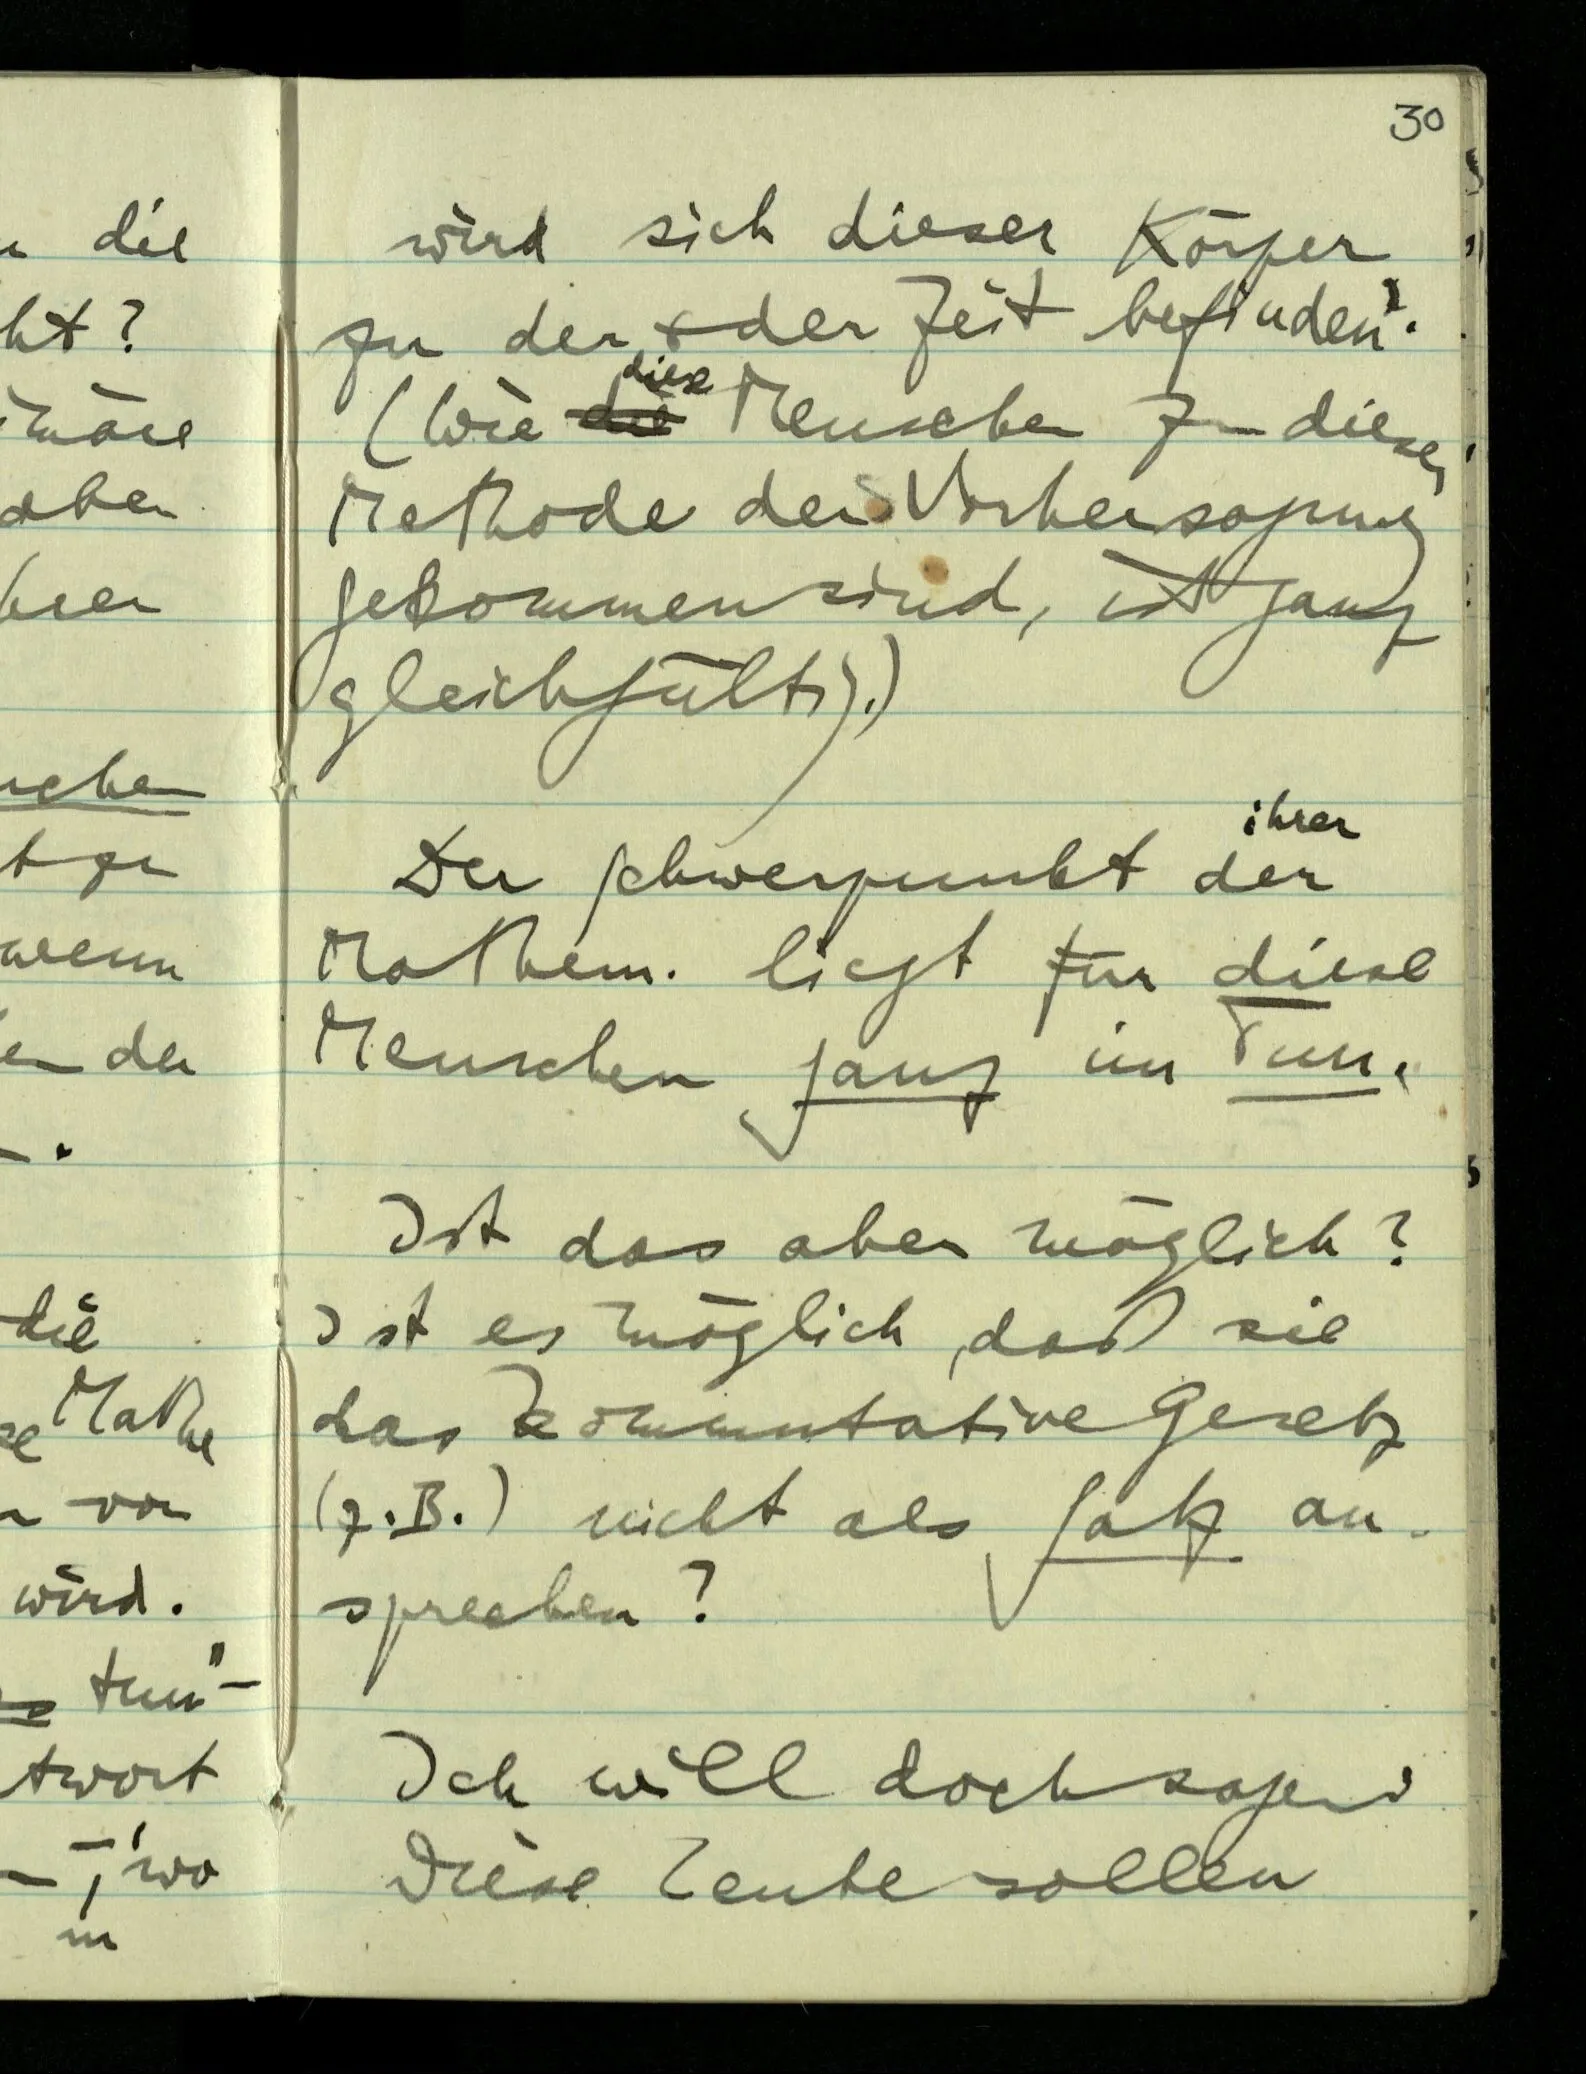 30
wird sich dieser Körper
zu der & der Zeit befinden".
(Wie die diese Menschen zu dieser
Methode der Vorhersagung
gekommen sind, ist ganz
gleichgültig.)
ihrer
Der Schwerpunkt der
Mathem. liegt für diese
Menschen ganz im Tun.
Ist das aber möglich?
Ist es möglich, daß sie
das kommutative Gesetz
(z.B.) nicht als Satz an-
sprechen?
Ich will doch sagen:
Diese Leute sollen
die
ht?
aben
wenn
der
die
Mathe
von
wird.
tun"-
twort
wo